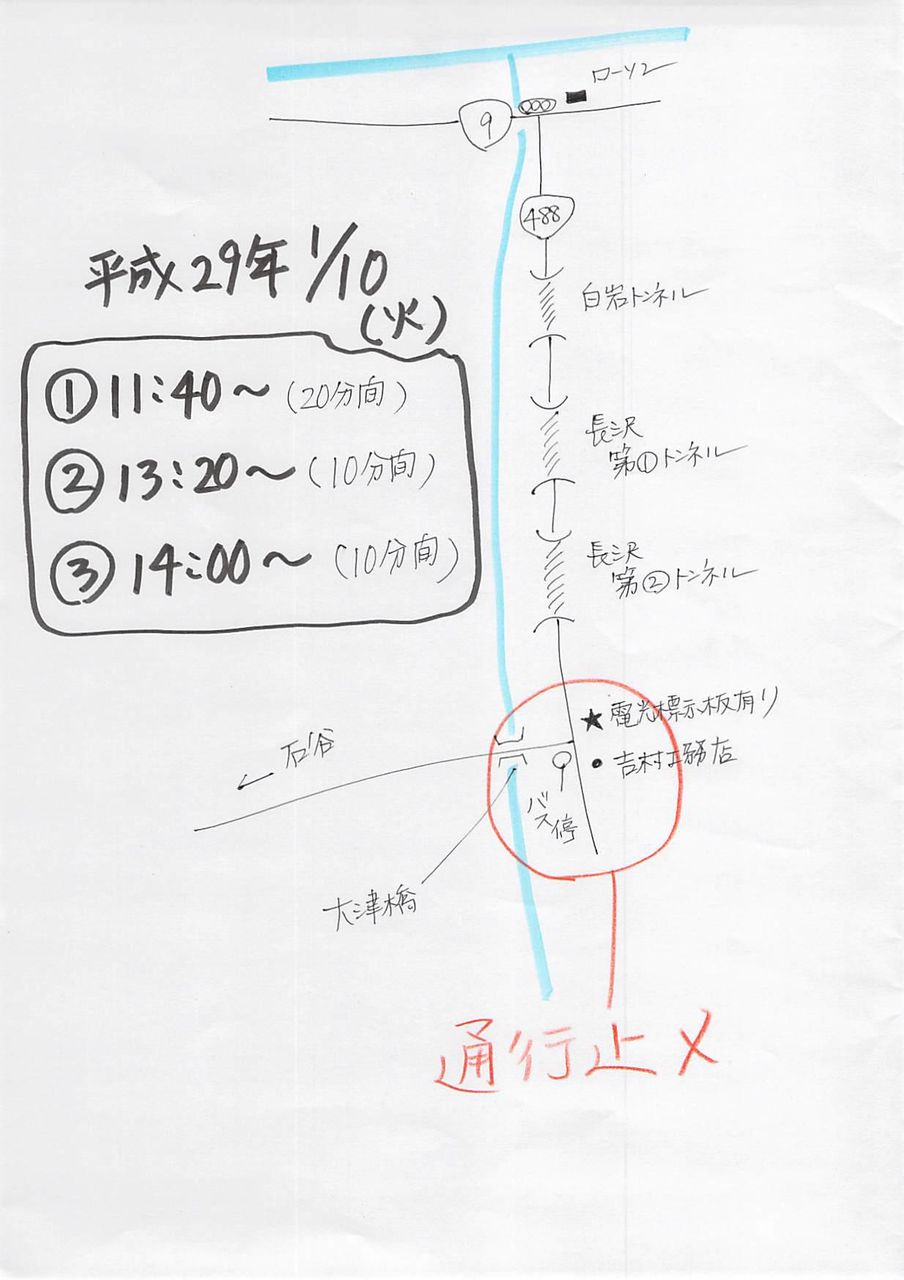 ローソン
9
488
平成29年1/10
(火)
①11:40〜(20分間)
②13:20〜(10分間)
③14:00〜(10分間)
白岩トンネル
長沢
第①トンネル
長沢
第②トンネル
★電光標示板有り
●吉村工務店
石谷
バス停
大津橋
通行止メ